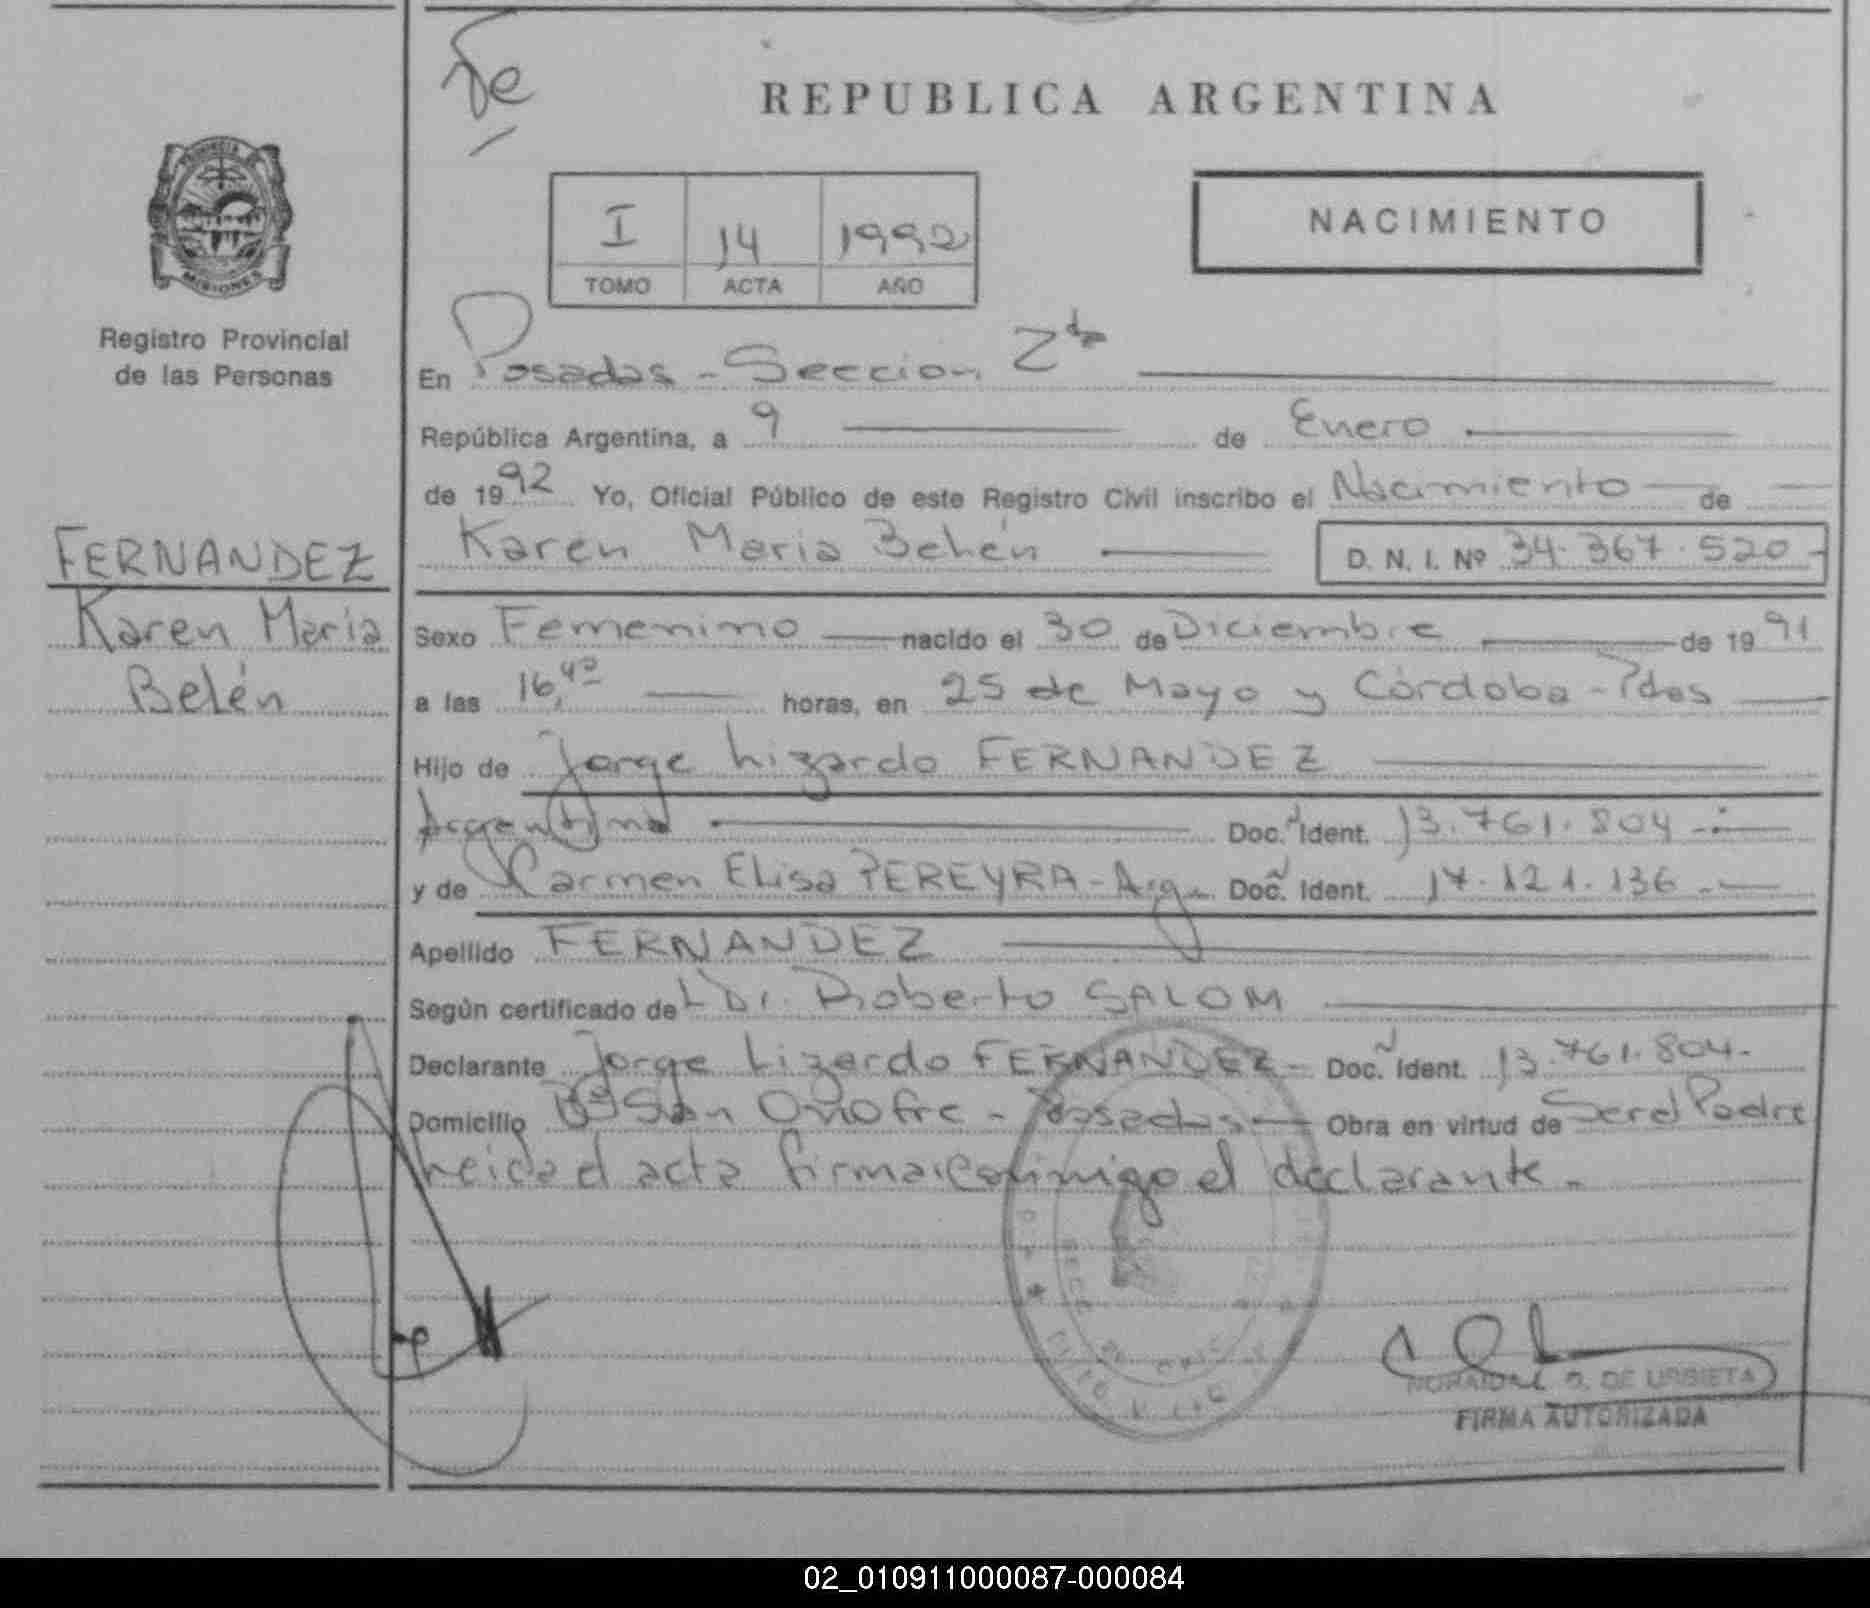 REPUBLICA ARGENTINA
PROVINCIA DE
MISIONES
Registro Provincial
de las Personas
I 14 1992
TOMO ACTA AÑO
NACIMIENTO
En Posadas - Seccion 2da
República Argentina, a 9 de Enero
de 1992 Yo, Oficial Público de este Registro Civil inscribo el Nacimiento de
Karen Maria Belén D. N. I. Nº 34.367.520
FERNANDEZ
Karen María
Belén
Sexo Femenino nacido el 30 de Diciembre de 1991
a las 16,42 horas, en 25 de Mayo y Córdoba - Pdas
Hijo de Jorge Lizardo FERNANDEZ
Argentino Doc. Ident. 13.761.804
y de Carmen Elisa PEREYRA - Arg. Doc. Ident. 17.121.136
Apellido FERNANDEZ
Según certificado de Dr. Roberto SALOM
Declarante Jorge Lizardo FERNANDEZ - Doc. Ident. 13.761.804.
Domicilio Bº San Onofre - Posadas Obra en virtud de Ser el Padre
leida el acta firma conmigo el declarante.
DE URBIETA
FIRMA AUTORIZADA
02_010911000087-000084